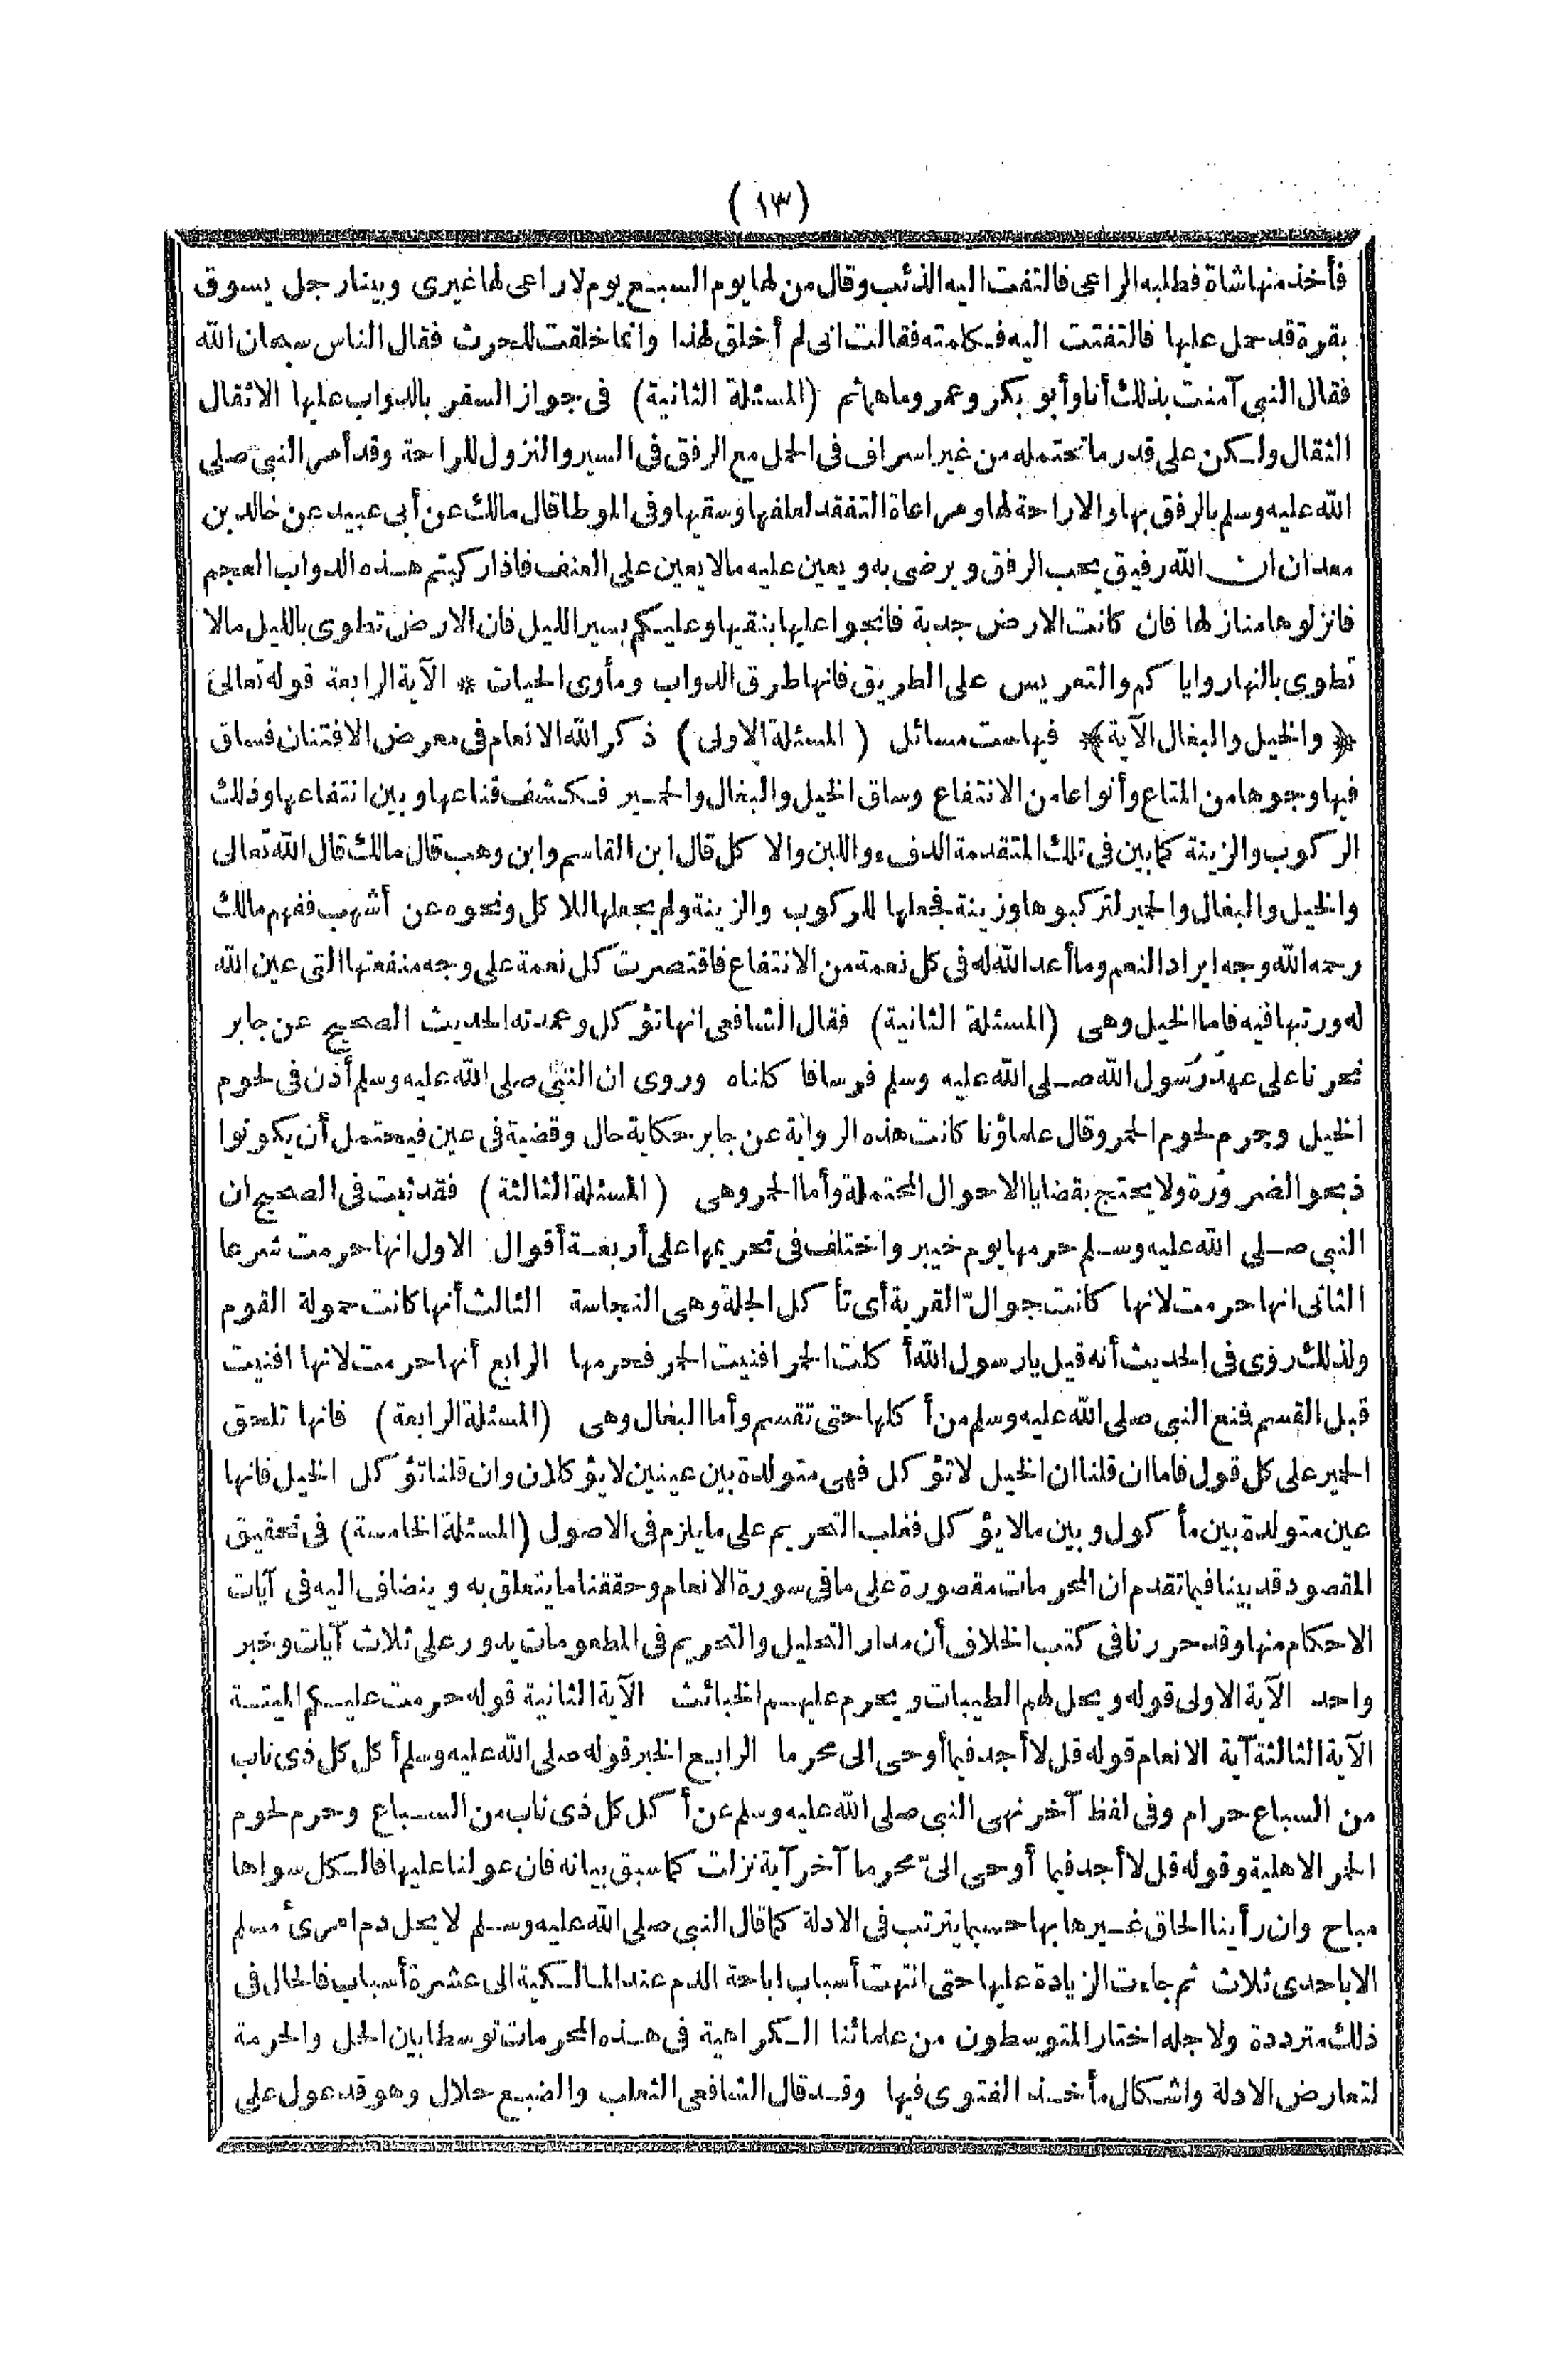 (١٣)
فأخذ منها شاة فطلبه الراعى فالتفت اليه الذئب وقال من لها يوم السبع يوم لا راعى لها غيرى وبينا رجل يسوق
بقرة قد حمل عليها فالتفتت اليه فكلمته فقالت انى لم أخلق لهذا وانما خلقت للحرث فقال الناس سبحان الله
فقال النبى آمنت بذلك أنا وأبو بكر وعمر وما هماثم (المسئلة الثانية) فى جواز السفر بالدواب عليها الاثقال
الثقال ولكن على قدر ما تحتمله من غير اسراف فى الحمل مع الرفق فى السير والنزول للراحة وقد أمر النبى صلى
الله عليه وسلم بالرفق بها والاراحة لها ومراعاة التفقد لعلفها وسقيها وفى الموطا قال مالك عن أبى عبيد عن خالد بن
معدان ان الله رفيق يحب الرفق ويرضى به ويعين عليه مالا يعين على العنف فاذا ركبتم هذه الدواب العجم
فانزلوها منازلها فان كانت الارض جدبة فانجوا عليها بنقيها وعليكم بسير الليل فان الارض تطوى بالليل مالا
تطوى بالنهار واياكم والتعريس على الطريق فانها طرق الدواب ومأوى الحيات * الآية الرابعة قوله تعالى
﴿ والخيل والبغال الآية﴾ فيها ست مسائل (المسئلة الاولى) ذكر الله الانعام فى معرض الافتنان فساق
فيها وجوها من المتاع وأنواعا من الانتفاع وساق الخيل والبغال والحمير فكشف قناعها وبين انتفاعها وذلك
الركوب والزينة كما بين فى تلك المتقدمة الدفء واللبن والاكل قال ابن القاسم وابن وهب قال مالك قال الله تعالى
والخيل والبغال والحمير لتركبوها وزينة فجعلها للركوب والزينة ولم يجعلها للاكل ونحوه عن أشهب ففهم مالك
رحمه الله وجه ايراد النعم وما أعد الله له فى كل نعمة من الانتفاع فاقتصرت كل نعمة على وجه منفعتها التى عين الله
له ورتبها فيه فاما الخيل وهى (المسئلة الثانية) فقال الشافعى انها تؤكل وعمدته الحديث الصحيح عن جابر
نحرنا على عهد رسول الله صلى الله عليه وسلم فرسا فاكلناه وروى ان النبى صلى الله عليه وسلم أذن فى لحوم
الخيل وحرم لحوم الحمر وقال علماؤنا كانت هذه الرواية عن جابر حكاية حال وقضية فى عين فيحتمل أن يكونوا
ذبحوا لضرورة ولا يحتج بقضايا الاحوال المحتملة وأما الحمر وهى (المسئلة الثالثة) فقد ثبت فى الصحيح ان
النبى صلى الله عليه وسلم حرمها يوم خيبر واختلف فى تحريمها على أربعة أقوال الاول انها حرمت شرعا
الثانى انها حرمت لانها كانت جوالّ القرية أى تأكل الجلة وهى النجاسة الثالث أنها كانت حمولة القوم
ولذلك روى فى الحديث أنه قيل يا رسول الله أكلت الحمر افنيت الحمر فحرمها الرابع أنها حرمت لانها افنيت
قبل القسم فمنع النبى صلى الله عليه وسلم من أكلها حتى تقسم وأما البغال وهى (المسئلة الرابعة) فانها تلحق
الحمير على كل قول فاما ان قلنا ان الخيل لا تؤكل فهى متولدة بين عينين لا يؤكلان وان قلنا تؤكل الخيل فانها
عين متولدة بين مأكول وبين مالا يؤكل فغلب التحريم على ما يلزم فى الاصول (المسئلة الخامسة) فى تحقيق
المقصود قد بينا فيما تقدم ان المحرمات مقصورة على ما فى سورة الانعام وحققنا ما يتعلق به وينضاف اليه فى آيات
الاحكام منها وقد حررنا فى كتب الخلاف أن مدار التحليل والتحريم فى المطعومات يدور على ثلاث آيات وخبر
واحد الآية الاولى قوله ويحل لهم الطيبات ويحرم عليهم الخبائث الآية الثانية قوله حرمت عليكم الميتة
الآية الثالثة آية الانعام قوله قل لا أجد فيما أوحى الى محرما الرابع الخبر قوله صلى الله عليه وسلم أكل كل ذى ناب
من السباع حرام وفى لفظ آخر نهى النبى صلى الله عليه وسلم عن أكل كل ذى ناب من السباع وحرم لحوم
الحمر الاهلية وقوله قل لا أجد فيما أوحى الىّ محرما آخر آية نزلت كما سبق بيانه فان عولنا عليها فالكل سواها
مباح وان رأينا الحاق غيرها بها حسبما يترتب فى الادلة كما قال النبى صلى الله عليه وسلم لا يحل دم امرئ مسلم
الا باحدى ثلاث ثم جاءت الزيادة عليها حتى انتهت أسباب اباحة الدم عند المالكية الى عشرة أسباب فالحال فى
ذلك مترددة ولاجله اختار المتوسطون من علمائنا الكراهية فى هذه المحرمات توسطا بين الحل والحرمة
لتعارض الادلة واشكال مأخذ الفتوى فيها وقد قال الشافعى الثعلب والضبع حلال وهو قد عول على